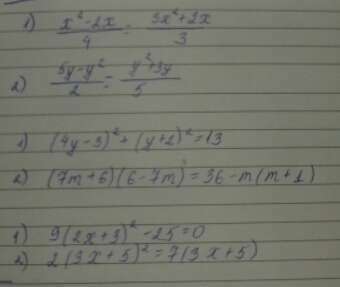 1) (x² - 2x)/4 = (3x² + 2x)/3
2) (5y - y²)/2 = (y² + 3y)/5
1) (4y - 3)² + (y + 2)² = 13
2) (7m + 6)(6 - 7m) = 36 - m(m + 1)
1) 9(2x + 3)² - 25 = 0
2) 2(3x + 5)² = 7(3x + 5)